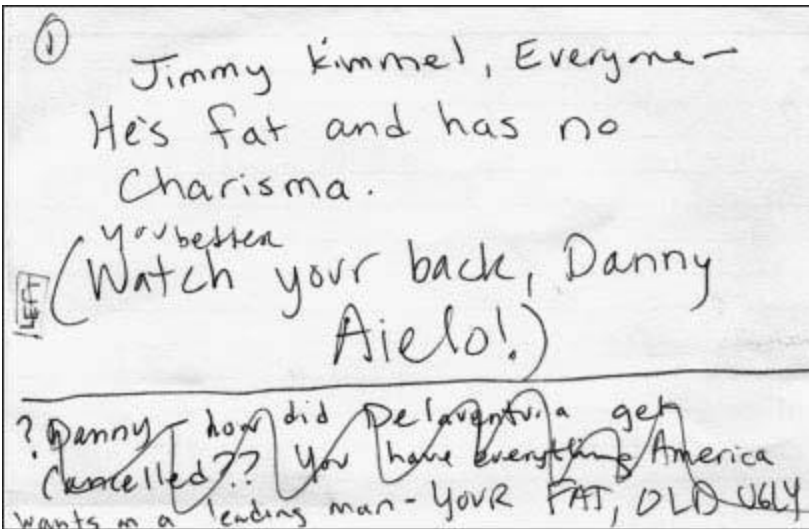 1
Jimmy Kimmel, Everyone -
He's fat and has no
Charisma.
you better
(Watch your back, Danny
Aielo!)
LEFT
? Danny - how did Delaventuia get
Cancelled?? You have everything America
wants in a leading man - YOUR FAT, OLD UGLY